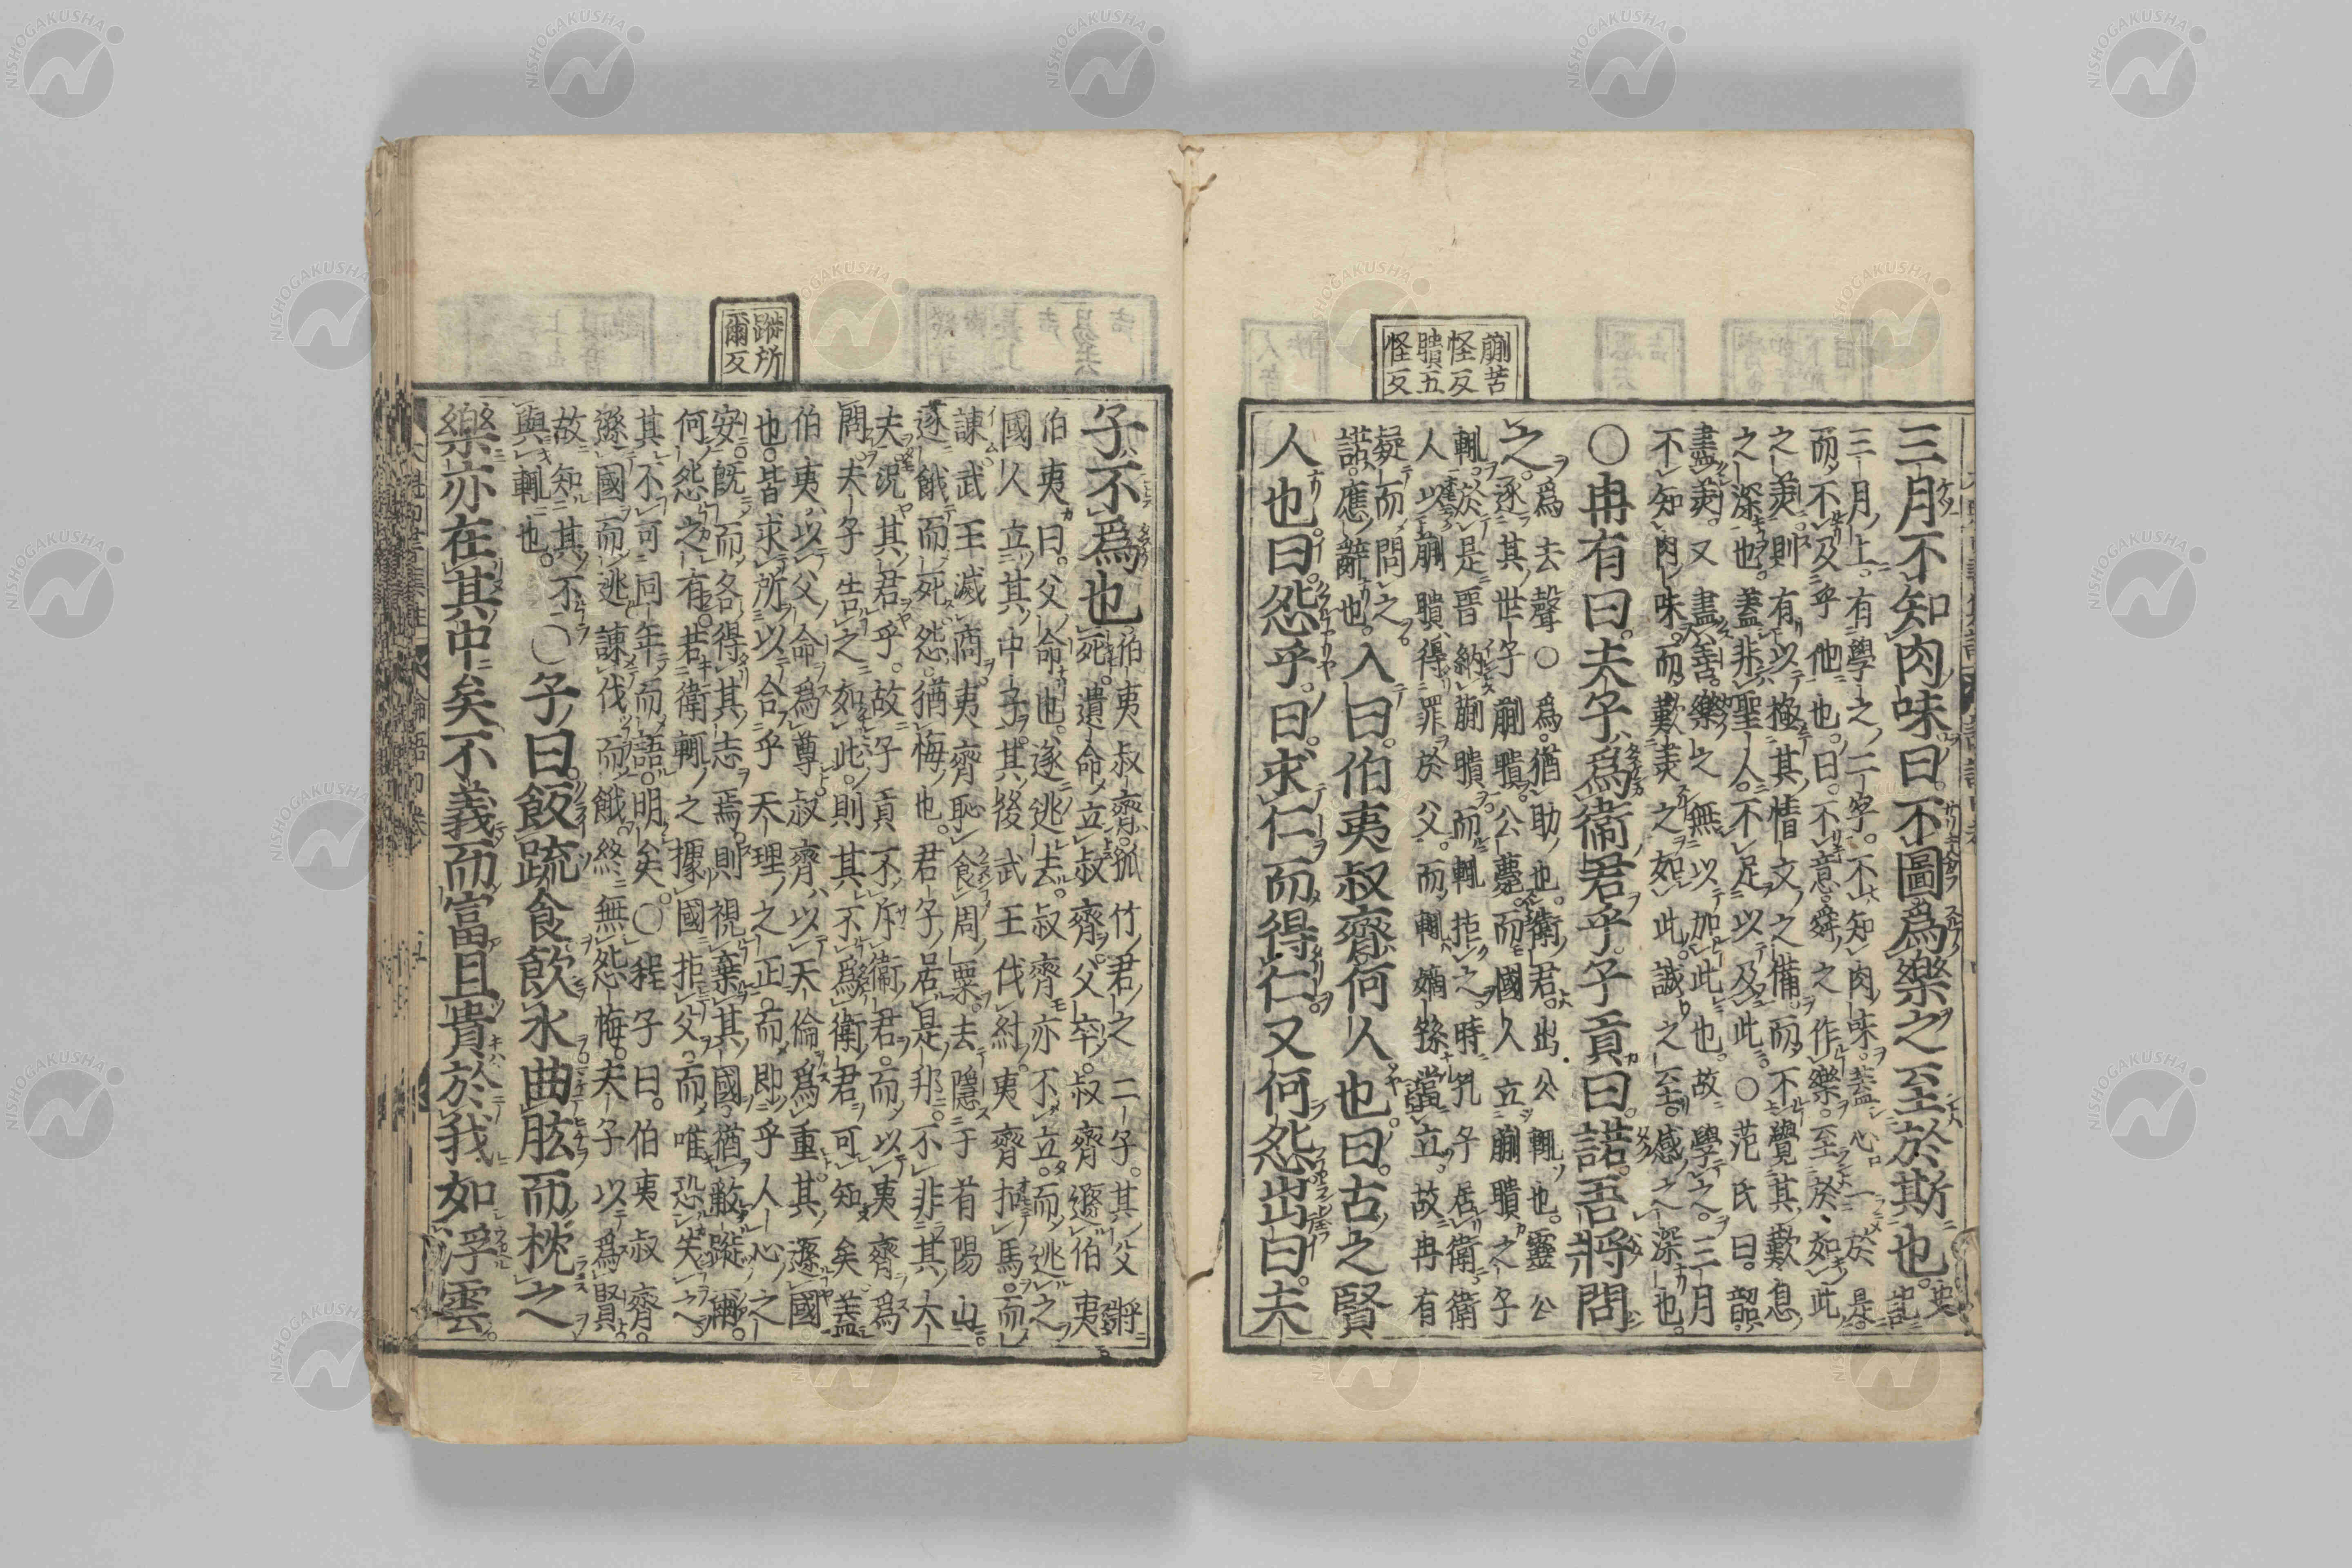 蒯苦
怪反
聵五
怪反
三月不知肉味曰。不圖爲樂之至於斯也。史
記
三月上。有學之二字。不知肉味。蓋心一於是。
而不及乎他也。曰。不意舜之作樂。至於如此
之美。則有以極其情文之備。而不覺其歎息
之深也。蓋非聖人。不足以及此。○范氏曰。韶
盡美。又盡善。樂之無以加此也。故學之。三月
不知肉味。而歎美之如此。誠之至。感之深也。
○冉有曰。夫子爲衛君乎。子貢曰。諾。吾將問
之。爲去聲○爲。猶助也。衛君。出公輒也。靈公
逐其世子蒯聵。公薨。而國人立蒯聵之子
輒。於是晉納蒯聵。而輒拒之。時孔子居衛。衛
人以蒯聵得罪於父。而輒嫡孫當立。故冉有
疑而問之。
諾。應辭也。入曰。伯夷叔齊。何人也。曰。古之賢
人也。曰。怨乎。曰。求仁而得仁。又何怨。出曰。夫
蹝所
爾反
子不爲也伯夷叔齊。孤竹君之二子。其父將
死。遺命立叔齊。父卒。叔齊遜伯夷
伯夷曰。父命也。遂逃去。叔齊亦不立。而逃之。
國人立其中子。其後武王伐紂。夷齊扣馬。而
諫。武王滅商。夷齊恥食周粟。去隱于首陽山。
遂餓而死。怨。猶悔也。君子居是邦。不非其大
夫。況其君乎。故子貢不斥衛君。而以夷齊爲
問。夫子告之如此。則其不爲衛君可知矣。蓋
伯夷以父命爲尊。叔齊以天倫爲重。其遜國
也。皆求所以合乎天理之正。而即乎人心之
安。既而各得其志焉。則視棄其國猶敝蹝爾。
何怨之有。若衛輒之據國拒父。而唯恐失之。
其不可同年而語明矣。○程子曰。伯夷叔齊。
遜國而逃。諫伐而餓。終無怨悔。夫子以爲賢。
故知其不
與輒也。○子曰。飯疏食飲水曲肱而枕之
樂亦在其中矣不義而富且貴於我如浮雲。